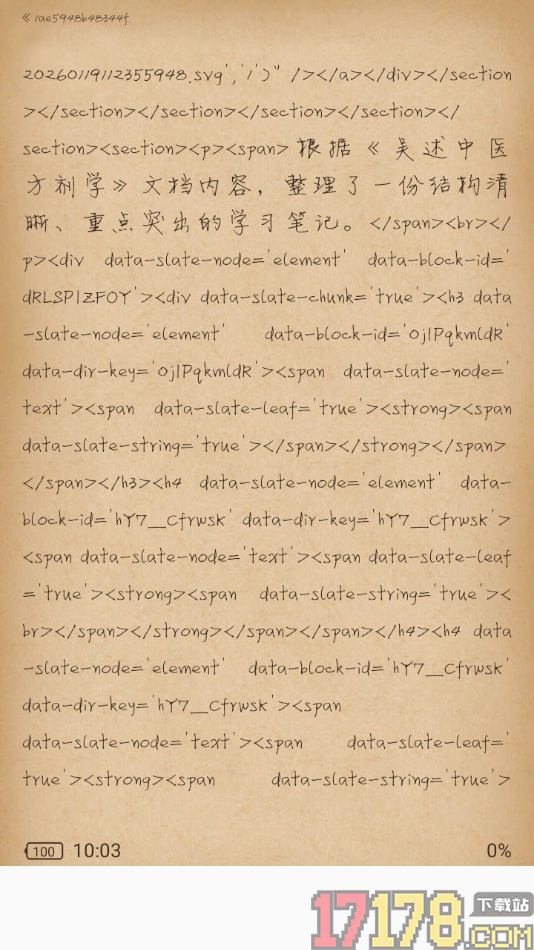 《 1ae5948b48344f
20260119112355948.svg','1')" /></a></div></section
></section></section></section></section></
section><section><p><span>根据《吴述中医
方剂学》文档内容，整理了一份结构清
晰、重点突出的学习笔记。</span><br></
p><div data-slate-node='element' data-block-id='
dRLSPIZFOY'><div data-slate-chunk='true'><h3 data
-slate-node='element' data-block-id='0jIPqkmldR'
data-dir-key='0jIPqkmldR'><span data-slate-node='
text'><span data-slate-leaf='true'><strong><span
data-slate-string='true'></span></strong></span>
</span></h3><h4 data-slate-node='element' data-
block-id='hY7__Cfrwsk' data-dir-key='hY7__Cfrwsk'>
<span data-slate-node='text'><span data-slate-leaf
='true'><strong><span data-slate-string='true'><
br></span></strong></span></span></h4><h4 data
-slate-node='element' data-block-id='hY7__Cfrwsk'
data-dir-key='hY7__Cfrwsk'><span
data-slate-node='text'><span data-slate-leaf='
true'><strong><span data-slate-string='true'>
100 10:03 0%
17178.COM 下载站